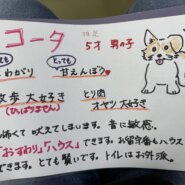 コータ
5才 男の子
とっても
わがり 甘えんぼう
散歩 大好き とり肉
(ひっぱりません) オヤツ 大好き
怖くて 吠えてしまいます。音に敏感。
「おすわり」「ハウス」できます。お留守番もハウス
できます。とても賢いです。トイレはお外派。